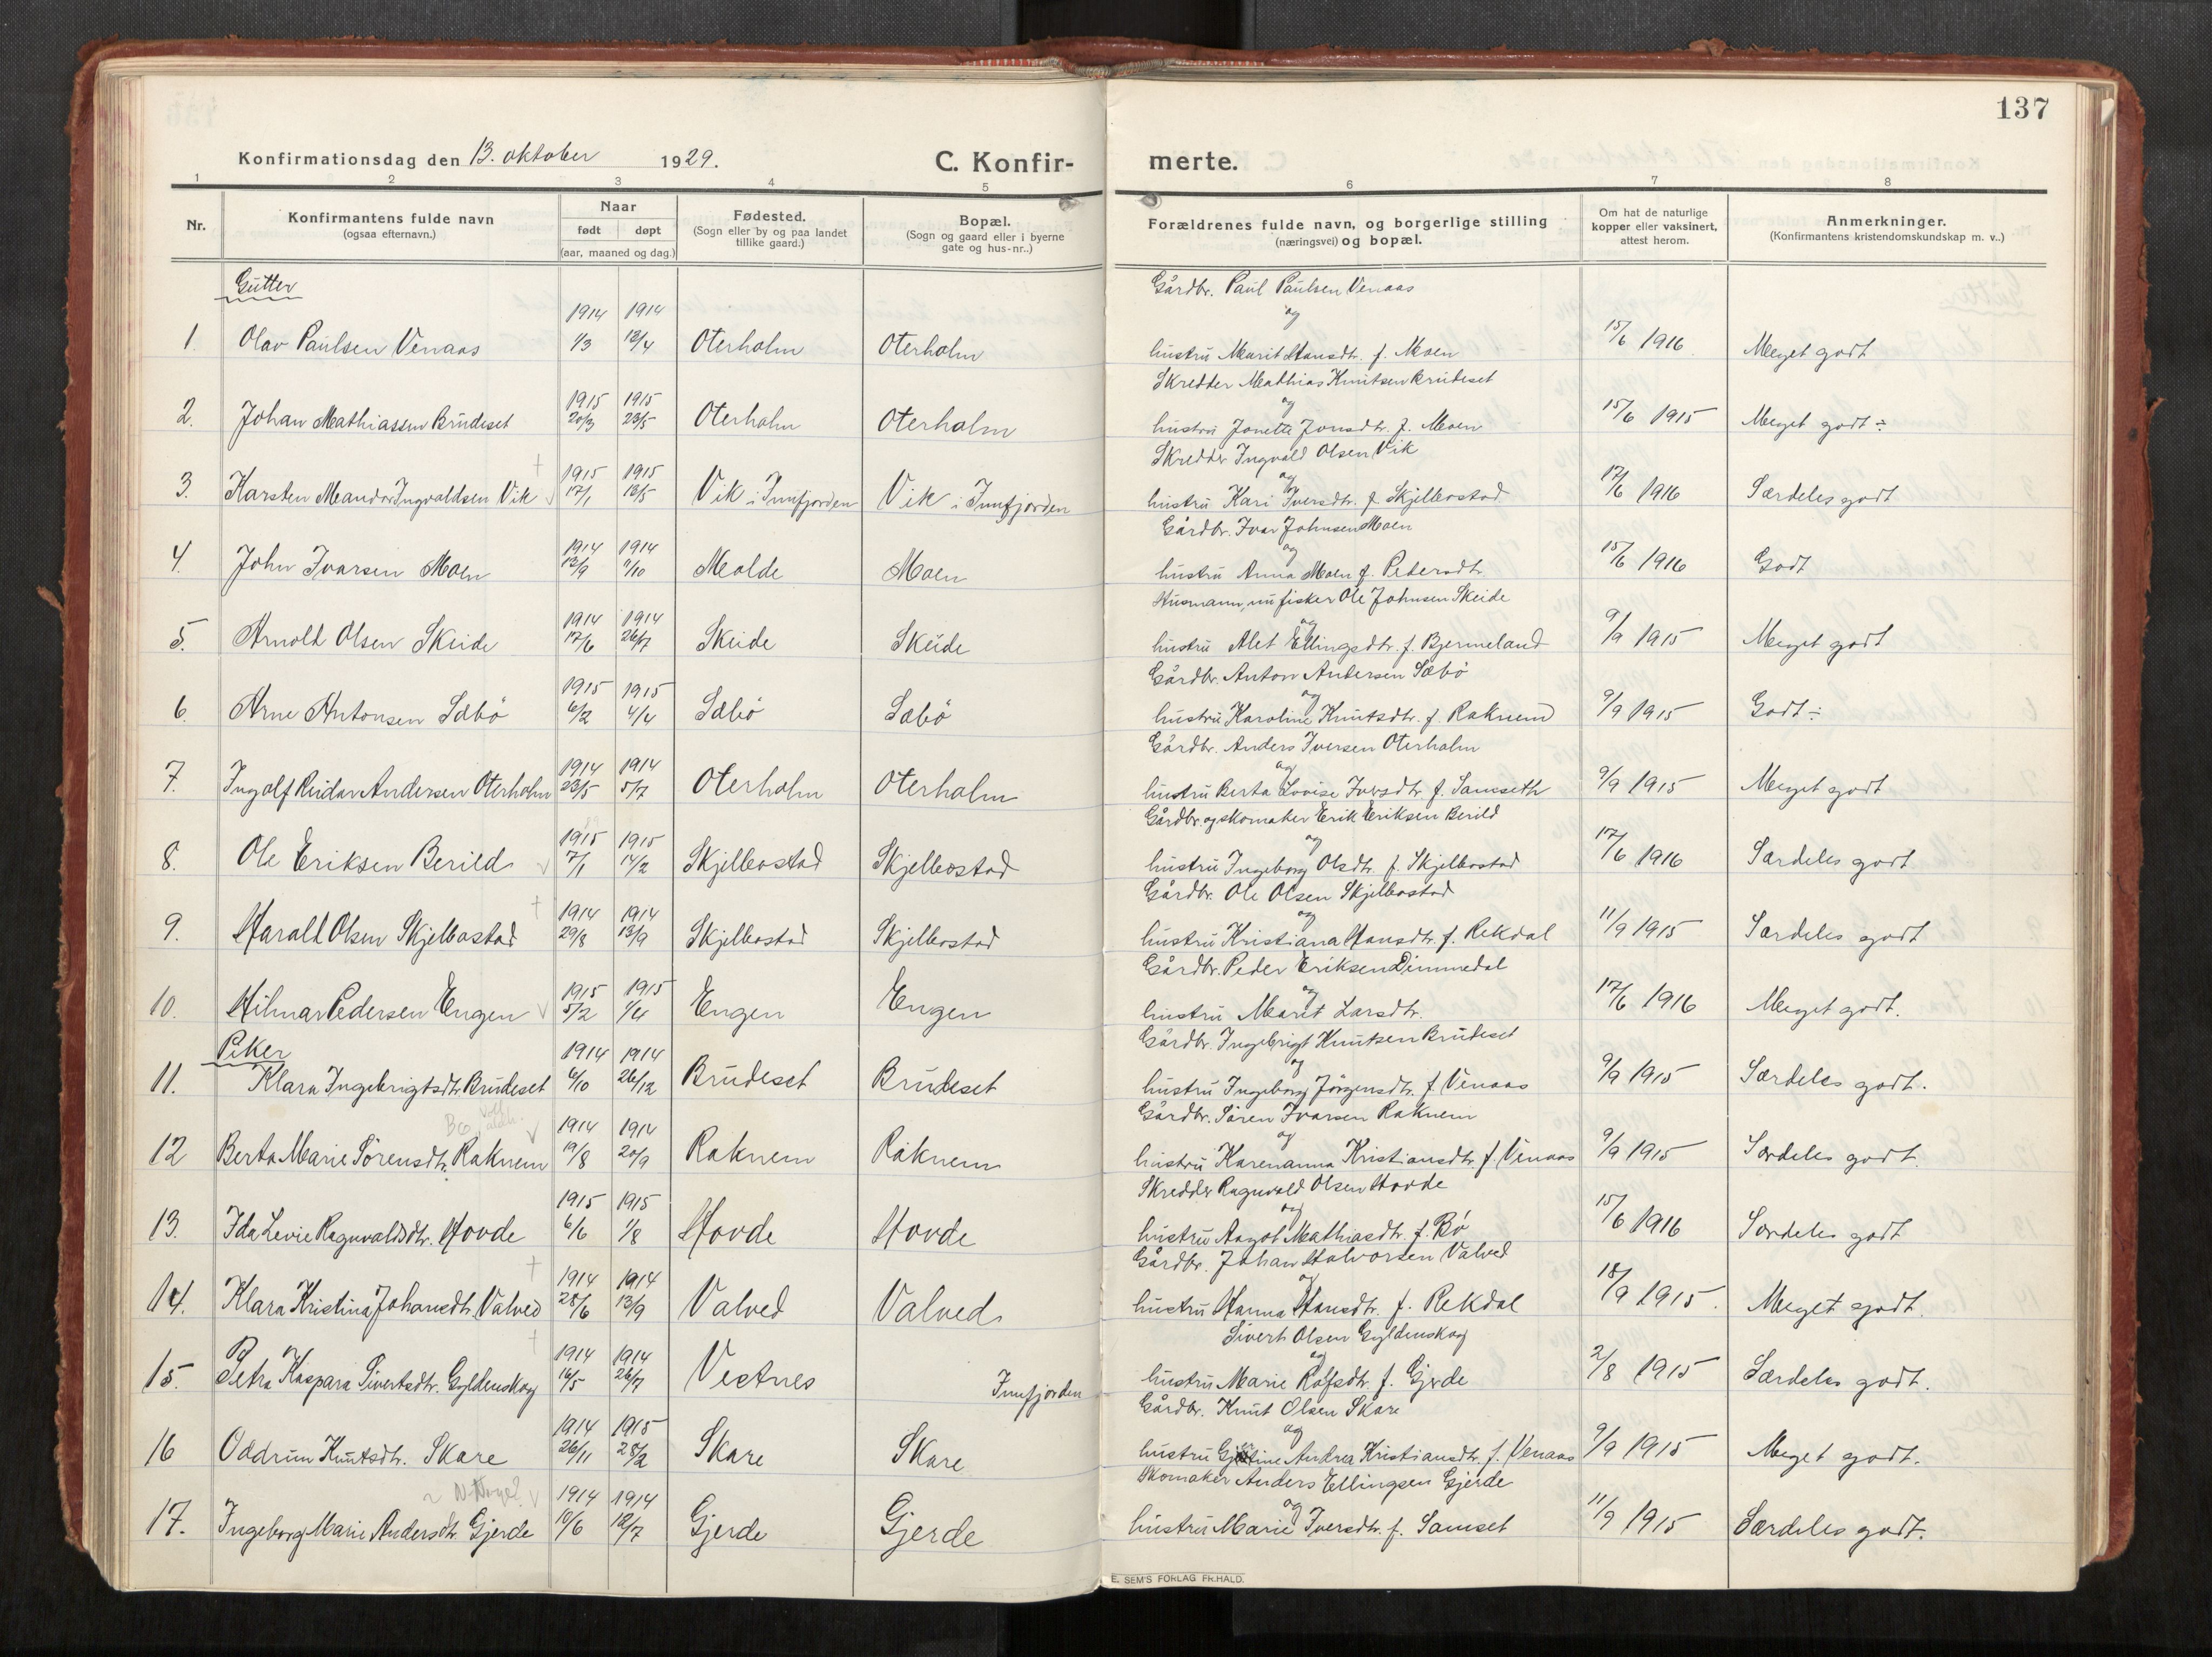 137
Konfirmationsdag den 13. oktober 1929.
C. Konfir- merte.
1 2 3 4 5 6 7 8
Nr.
Konfirmantens fulde navn
(ogsaa efternavn.)
Naar
født døpt
(aar, maaned og dag.)
Fødested.
(Sogn eller by og paa landet
tillike gaard.)
Bopæl.
(Sogn og gaard eller i byerne
gate og hus-nr..)
Forældrenes fulde navn, og borgerlige stilling
(næringsvei) og bopæl.
Om hat de naturlige
kopper eller vaksinert,
attest herom.
Anmerkninger.
(Konfirmantens kristendomskundskap m. v..)
Gutter
Gårdbr. Paul Paulsen Venaas
1914 1914 og
1. Olav Paulsen Venaas 1/3 13/4 Oterholm Oterholm hustru Marit Hansdtr. f. Moen 15/6 1916 Meget godt
Skredder Mathias Knutsen Brudeset
1915 1915 og
2. Johan Mathiassen Brudeset 20/3 23/5 Oterholm Oterholm hustru Jonette Jonsdtr. f. Moen 15/6 1915 Meget godt ÷
Skredder Ingvald Olsen Vik
† 1915 1915 og
3. Karsten Meandor Ingvaldsen Vik 17/1 13/5 Vik i Innfjorden Vik i Innfjorden hustru Kari Iversdtr. f. Skjelbostad 17/6 1916 Særdeles godt
Gårdbr. Ivar Johnsen Moen
1914 1914 og
4. John Ivarsen Moen 12/9 4/10 Molde Moen hustru Anna Moen f. Pedersdtr. 15/6 1916 Godt
Husmann, nu fisker Ole Johnsen Skeide
1914 1914 og
5. Arnold Olsen Skeide 17/6 26/7 Skeide Skeide hustru Alet Ellingsdtr. f. Bjermeland 9/9 1915 Meget godt
Gårdbr. Anton Andersen Sæbö
1915 1915 og
6. Arne Antonsen Sæbö 6/2 4/4 Sæbö Sæbö hustru Karoline Knutsdtr. f. Raknem 9/9 1915 Godt ÷
Gårdbr. Anders Iversen Oterholm
1914 1914 og
7. Ingolf Reidar Andersen Oterholm 23/5 5/7 Oterholm Oterholm hustru Berta Lovise Iversdtr. f. Samseth 9/9 1915 Meget godt
Gårdbr. og skomaker Erik Eriksen Berild
1915 1915 og
8. Ole Eriksen Berild 7/1 14/2 Skjelbostad Skjelbostad hustru Ingeborg Olsdtr. f. Skjelbostad 17/6 1916 Særdeles godt
Gårdbr. Ole Olsen Skjelbostad
† 1914 1914 og
9. Harald Olsen Skjelbostad 29/8 13/9 Skjelbostad Skjelbostad hustru Kristiana Hansdtr. f. Rekdal 11/9 1915 Særdeles godt
Gårdbr. Peder Eriksen Dimmedal
1915 1915 og
10. Hilmar Pedersen Engen 5/2 1/4 Engen Engen hustru Marit Larsdtr. 17/6 1916 Meget godt.
Piker
Gårdbr. Ingebrigt Knutsen Brudeset
1914 1914 og
11. Klara Ingebrigtsdtr. Brudeset 6/10 26/12 Brudeset Brudeset hustru Ingeborg Jörgensdtr. f. Venaas 9/9 1915 Særdeles godt.
Gårdbr. Sören Ivarsen Raknem
1914 1914 og
12 Berta Marie Sörensdtr. Raknem 19/8 20/9 Raknem Raknem hustru Karenanna Kristiansdtr. f. Venaas 9/9 1915 Særdeles godt.
Skredder Ragnvald Olsen Hovde
1915 1915 og
13. Ida Levie Ragnvaldsdtr. Hovde 6/6 1/8 Hovde Hovde hustru Aagot Mathiasdtr. f. Bö 15/6 1916 Særdeles godt
Gårdbr. Johan Halvorsen Valved
† 1914 1914 og
14. Klara Kristina Johansdtr. Valved 28/6 13/9 Valved Valved hustru Hanna Hansdtr. f. Rekdal 18/9 1915. Meget godt.
Sivert Olsen Gyldenskog
† 1914 1914 og
15. Petra Kaspara Sivertsdtr. Gyldenskog 16/5 26/7 Vestnes Innfjorden hustru Marie Rolfsdtr. f. Gjerde 2/8 1915 Særdeles godt.
Gårdbr. Knut Olsen Skare
1914 1915 og
16 Oddrun Knutsdtr. Skare 26/11 28/2 Skare Skare hustru Andrea Kristiansdtr. f. Venaas 9/9 1915 Meget godt.
Skomaker Anders Ellingsen Gjerde
1914 1914 og
17. Ingeborg Marie Andersdtr. Gjerde 10/6 12/7 Gjerde Gjerde hustru Marie Iversdtr. f. Samset 11/9 1915 Særdeles godt.
E. SEM'S FORLAG FR.HALD.